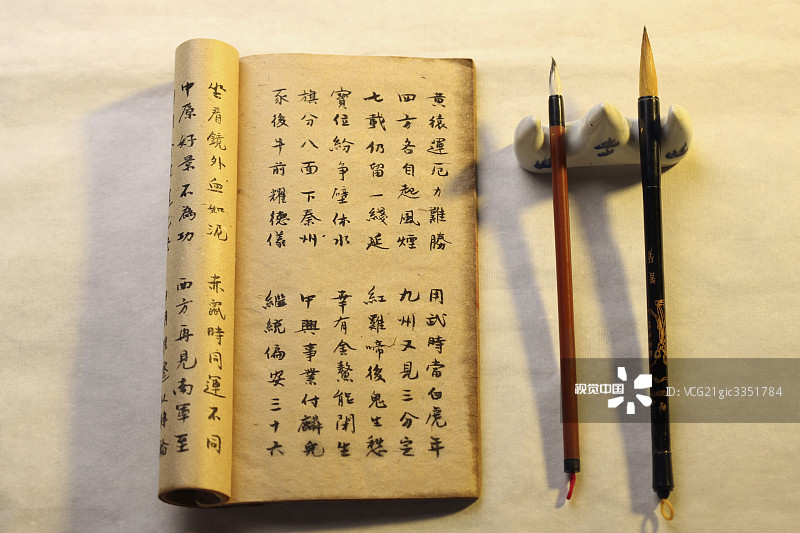 黄猿運厄力難勝 用武時當白虎年
四方各自起風煙 九州又見三分定
七載仍留一綫延 紅雞啼後鬼生愁
寶位紛爭壁休水 幸有金鰲能閉生
旗分八面下秦州 中興事業付麟兒
豕後牛前耀德儀 繼統偏安三十六
坐看鏡外血如泥 赤鼠時同運不同
中原好景不為功 西方再見南軍至
视觉中国
ID: VCG21gic3351784